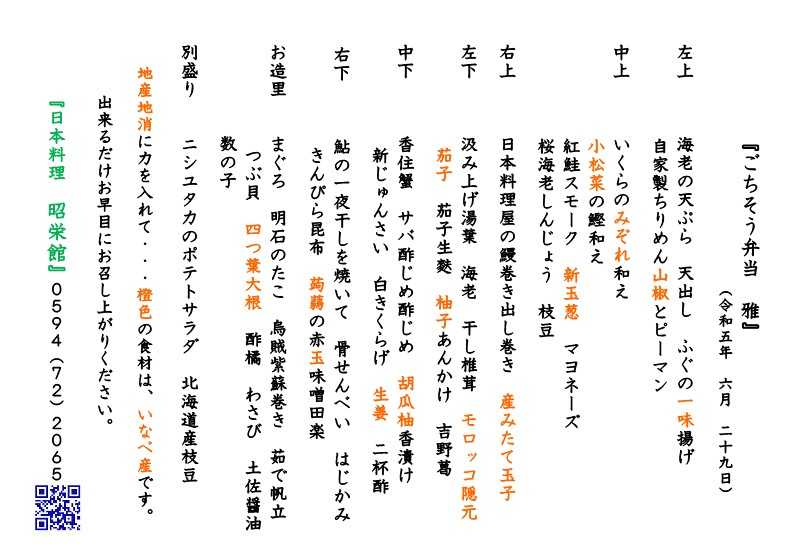 『ごちそう弁当 雅』
(令和五年 六月 二十九日)
左上 海老の天ぷら 天出し ふぐの一味揚げ
自家製ちりめん山椒とピーマン
中上 いくらのみぞれ和え
小松菜の鰹和え
紅鮭スモーク 新玉葱 マヨネーズ
桜海老しんじょう 枝豆
右上 日本料理屋の鰻巻き出し巻き 産みたて玉子
左下 汲み上げ湯葉 海老 干し椎茸 モロッコ隠元
茄子 茄子生麩 柚子あんかけ 吉野葛
中下 香住蟹 サバ酢じめ酢じめ 胡瓜柚香漬け
新じゅんさい 白きくらげ 生姜 二杯酢
右下 鮎の一夜干しを焼いて 骨せんべい はじかみ
きんぴら昆布 蒟蒻の赤玉味噌田楽
お造里 まぐろ 明石のたこ 烏賊紫蘇巻き 茹で帆立
つぶ貝 四つ葉大根 酢橘 わさび 土佐醤油
数の子
別盛り ニシユタカのポテトサラダ 北海道産枝豆
地産地消に力を入れて・・・橙色の食材は、いなべ産です。
出来るだけお早目にお召し上がりください。
『日本料理 昭栄館』0594(72)2065